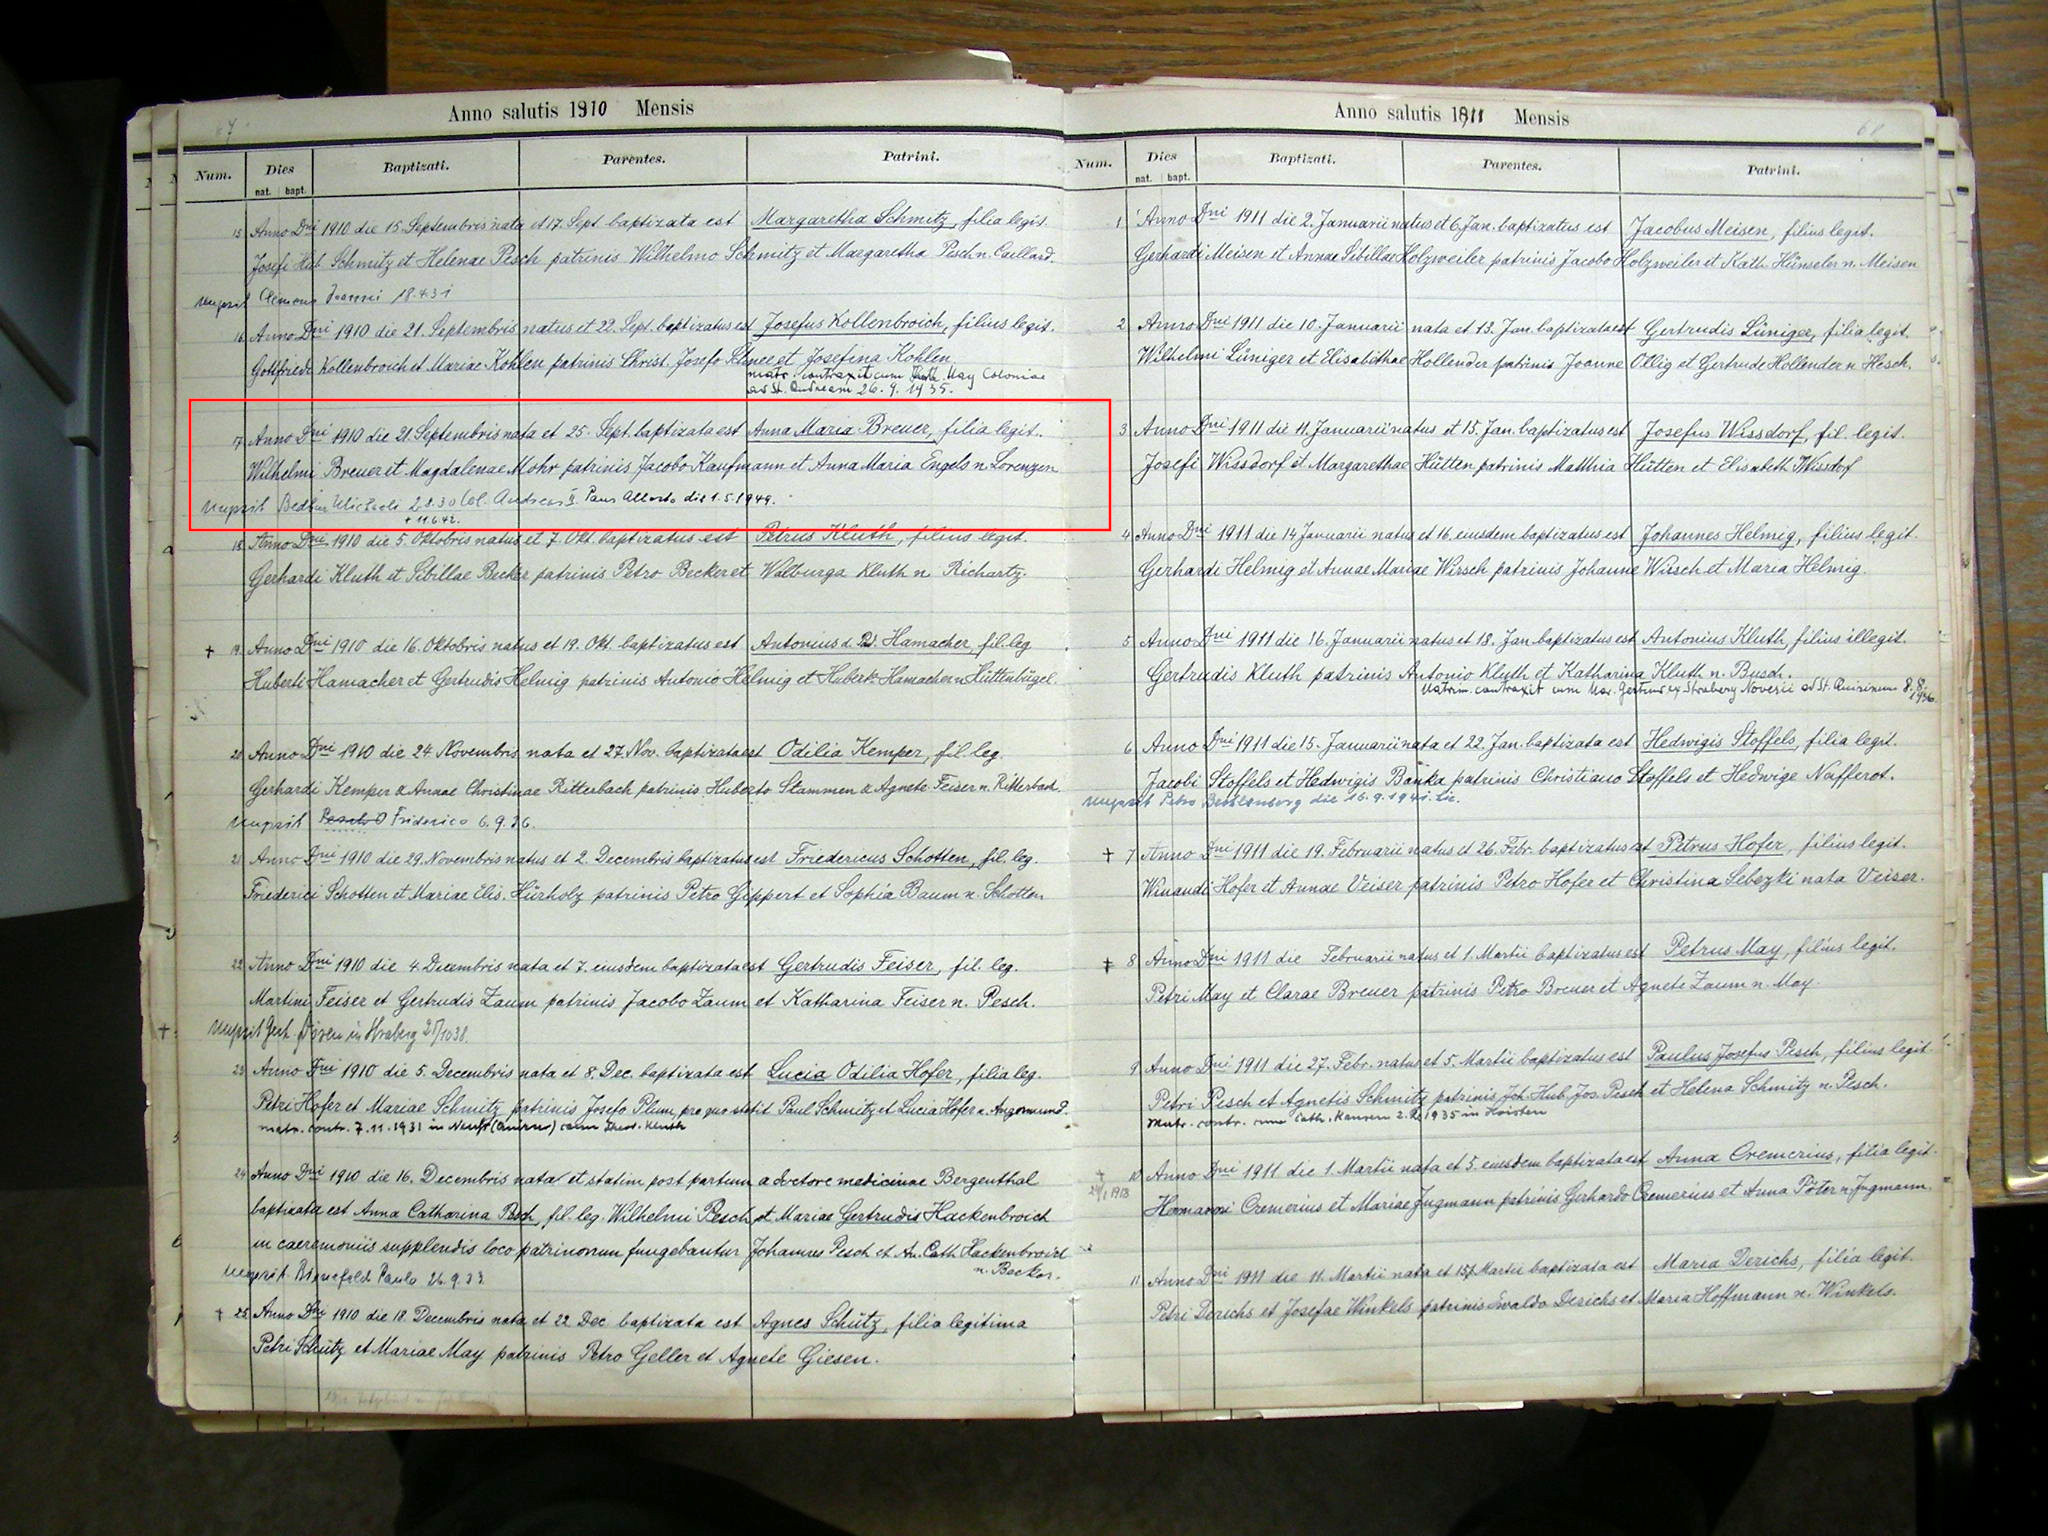 Anno salutis 1910 Mensis
67
Num. Dies nat. bapt. Baptizati. Parentes. Patrini.
15 Anno Dni 1910 die 15. Septembris nata et 17. Sept. baptizata est Margaretha Schmitz, filia legit.
Josefi Hub. Schmitz et Helenae Pesch patrinis Wilhelmo Schmitz et Margaretha Pesch n. Caillard.
nupsit Clemens Joanni 18.4.31
16 Anno Dni 1910 die 21. Septembris natus et 22. Sept. baptizatus est Josefus Kollenbroich, filius legit.
Gottfriedi Kollenbroich et Mariae Kohlen patrinis Christ. Josefo Schnee et Josefina Kohlen.
matr. contraxit cum May Coloniae
ad St. Andream 26. 9. 1935.
17 Anno Dni 1910 die 21. Septembris nata et 25. Sept. baptizata est Anna Maria Breuer, filia legit.
Wilhelmi Breuer et Magdalenae Mohr patrinis Jacobo Kaufmann et Anna Maria Engels n. Lorenzen
nupsit Michaeli 2.8.30 Col. Andreas II. Paus Alberto die 1.5.1949.
+ 11.6.42.
18 Anno Dni 1910 die 5. Oktobris natus et 7. Okt. baptizatus est Petrus Kluth, filius legit.
Gerhardi Kluth et Sibillae Becker patrinis Petro Becker et Walburga Kluth n. Richartz.
+ 19. Anno Dni 1910 die 16. Oktobris natus et 19. Okt. baptizatus est Antonius Hamacher, fil. leg.
Huberti Hamacher et Gertrudis Helmig patrinis Antonio Helmig et Hubert. Hamacher n. Hüttenbügel.
20 Anno Dni 1910 die 24. Novembris nata et 27. Nov. baptizata est Odilia Kemper, fil. leg.
Gerhardi Kemper & Annae Christinae Ritterbach patrinis Huberto Stammen & Agnete Feiser n. Ritterbach
nupsit Friderico 6.9.36.
21 Anno Dni 1910 die 29. Novembris natus et 2. Decembris baptizatus est Friedericus Schotten, fil. leg.
Friederici Schotten et Mariae Elis. Hürholz patrinis Petro Gippert et Sophia Baum n. Schotten
22 Anno Dni 1910 die 4. Decembris nata et 7. eiusdem baptizata est Gertrudis Feiser, fil. leg.
Martini Feiser et Gertrudis Zaum patrinis Jacobo Zaum et Katharina Feiser n. Pesch.
nupsit Gerh. in
23 Anno Dni 1910 die 5. Decembris nata et 8. Dec. baptizata est Lucia Odilia Hofer, filia leg.
Petri Hofer et Mariae Schmitz patrinis Josefo Plum, pro quo stetit Paul Schmitz et Lucia Hofer n. Angermund.
matr. contr. 7.11.1931 in Neuss (Quirin) cum Theod. Kluth
24 Anno Dni 1910 die 16. Decembris nata et statim post partum a doctore medicinae Bergenthal
baptizata est Anna Catharina Pesch, fil. leg. Wilhelmi Pesch et Mariae Gertrudis Hackenbroich
in caeremoniis supplendis loco patrinorum fungebantur Johannes Pesch et An. Cath. Hackenbroich
n. Becker.
nupsit Paulo 26.9.33.
+ 25. Anno Dni 1910 die 18. Decembris nata et 22 Dec. baptizata est Agnes Schütz, filia legitima
Petri Schütz et Mariae May patrinis Petro Geller et Agnete Giesen.
Anno salutis 1911 Mensis
68
Num. Dies nat. bapt. Baptizati. Parentes. Patrini.
1 Anno Dni 1911 die 2. Januarii natus et 6. Jan. baptizatus est Jacobus Meisen, filius legit.
Gerhardi Meisen et Annae Sibillae Holzweiler patrinis Jacobo Holzweiler et Kath. Hünseler n. Meisen
2 Anno Dni 1911 die 10. Januarii nata et 13. Jan. baptizata est Gertrudis Lüniger, filia legit.
Wilhelmi Lüniger et Elisabethae Hollender patrinis Joanne Ollig et Gertrude Hollender n. Hesch.
3 Anno Dni 1911 die 11. Januarii natus et 15. Jan. baptizatus est Josefus Wissdorf, fil. legit.
Josefi Wissdorf et Margarethae Hütten patrinis Matthia Hütten et Elisabeth Wissdorf
4 Anno Dni 1911 die 14 Januarii natus et 16. eiusdem baptizatus est Johannes Helmig, filius legit.
Gerhardi Helmig et Annae Mariae Wirsch patrinis Johanne Wirsch et Maria Helmig.
5 Anno Dni 1911 die 16. Januarii natus et 18. Jan. baptizatus est Antonius Kluth, filius illegit.
Gertrudis Kluth patrinis Antonio Kluth et Katharina Kluth n. Busch.
Matrim. contraxit cum Mar. Gertrud Novesii ad St. Quirinum 8.8.1936.
6 Anno Dni 1911 die 15. Januarii nata et 22. Jan. baptizata est Hedwigis Stoffels, filia legit.
Jacobi Stoffels et Hedwigis Banka patrinis Christiano Stoffels et Hedwige Nafferot.
nupsit Petro die 16.9.1941.
+ 7 Anno Dni 1911 die 19. Februarii natus et 26. Febr. baptizatus est Petrus Hofer, filius legit.
Winandi Hofer et Annae Veiser patrinis Petro Hofer et Christina Sebezki nata Veiser.
+ 8 Anno Dni 1911 die Februarii natus et 1. Martii baptizatus est Petrus May, filius legit.
Petri May et Clarae Breuer patrinis Petro Breuer et Agnete Zaum n. May.
9 Anno Dni 1911 die 27. Febr. natus et 5. Martii baptizatus est Paulus Josefus Pesch, filius legit.
Petri Pesch et Agnetis Schmitz patrinis Joh. Hub. Jos. Pesch et Helena Schmitz n. Pesch.
matr. contr. cum Cath. 1935 in
+ 10 Anno Dni 1911 die 1. Martii nata et 5. eiusdem baptizata est Anna Cremerius, filia legit.
Hermanni Cremerius et Mariae Jngmann patrinis Gerhardo Cremerius et Anna Pöter n. Jngmann.
11 Anno Dni 1911 die 11. Martii nata et 15. Martii baptizata est Maria Derichs, filia legit.
Petri Derichs et Josefae Winkels patrinis Ewaldo Derichs et Maria Hoffmann n. Winkels.